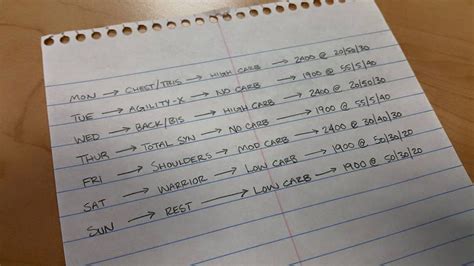 MON → CHEST/TRIS → HIGH CARB → 2400 @ 20/50/30
TUE → AGILITY-X → NO CARB → 1900 @ 55/5/40
WED → BACK/BIS → HIGH CARB → 2400 @ 20/50/30
THUR → TOTAL SYN → NO CARB → 1900 @ 55/5/40
FRI → SHOULDERS → MOD CARB → 2400 @ 30/40/30
SAT → WARRIOR → LOW CARB → 1900 @ 50/30/20
SUN → REST → LOW CARB → 1900 @ 50/30/20